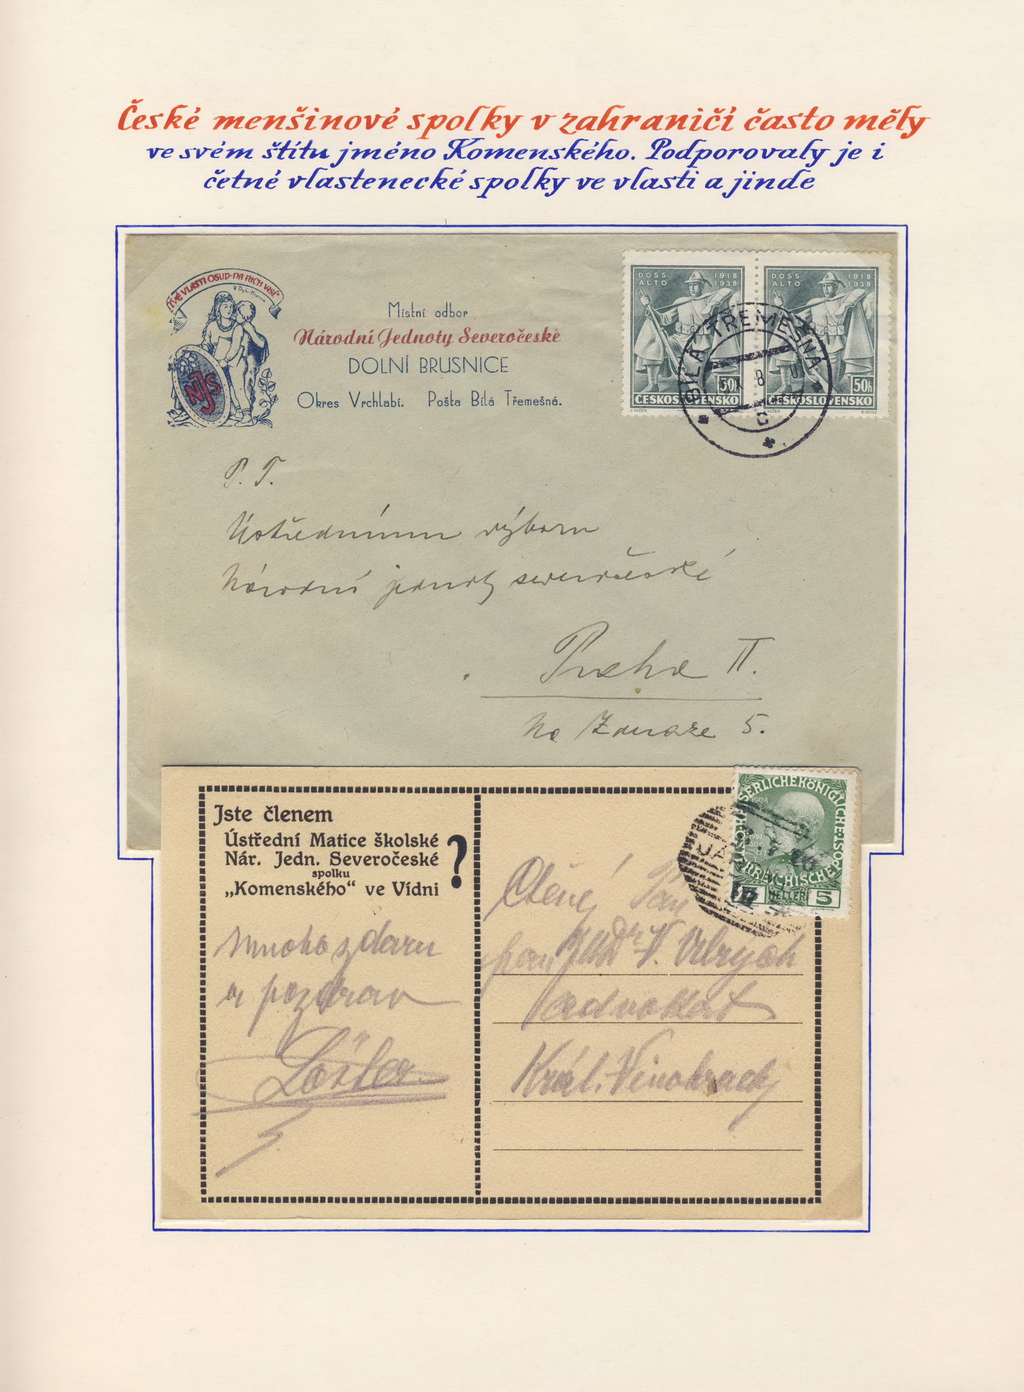 České menšinové spolky v zahraničí často měly
ve svém štítu jméno Komenského. Podporovaly je i
četné vlastenecké spolky ve vlasti a jinde
Místní odbor
Národní Jednoty Severočeské
DOLNÍ BRUSNICE
Okres Vrchlabí. Pošta Bílá Třemešná.
NJS
DOSS ALTO 1918 1938
50h
ČESKOSLOVENSKO
DOSS ALTO 1918 1938
50h
ČESKOSLOVENSKO
BÍLÁ TŘEMEŠNÁ
P. T.
Ústřednímu výboru
Národní jednoty severočeské
Praha II.
Na Zderaze 5.
Jste členem
Ústřední Matice školské
Nár. Jedn. Severočeské
spolku
„Komenského“ ve Vídni
?
Mnoho zdaru
a pozdrav
5
HELLER
5
Ctěný Pan
pan JUDr V.
advokat
Král. Vinohrady